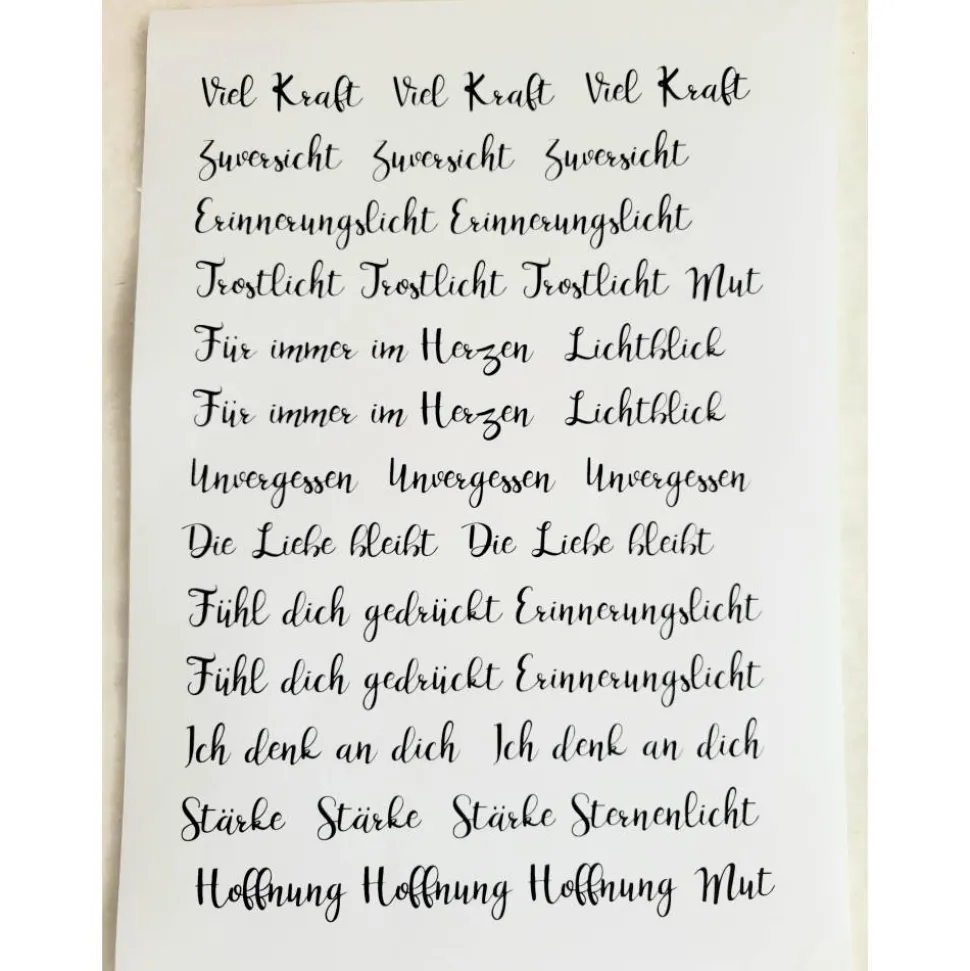 Viel Kraft Viel Kraft Viel Kraft
Zuversicht Zuversicht Zuversicht
Erinnerungslicht Erinnerungslicht
Trostlicht Trostlicht Trostlicht Mut
Für immer im Herzen Lichtblick
Für immer im Herzen Lichtblick
Unvergessen Unvergessen Unvergessen
Die Liebe bleibt Die Liebe bleibt
Fühl dich gedrückt Erinnerungslicht
Fühl dich gedrückt Erinnerungslicht
Ich denk an dich Ich denk an dich
Stärke Stärke Stärke Sternenlicht
Hoffnung Hoffnung Hoffnung Mut